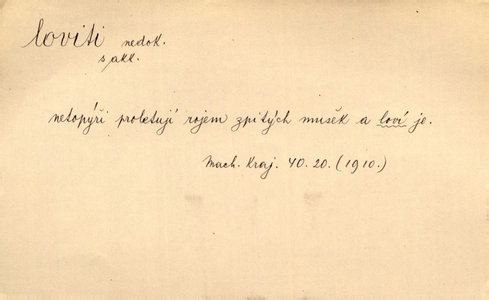 loviti nedok.
s akk.
netopýři proletují rojem zpitých mušek a loví je.
Mach. Kraj. 40. 20. (1910.)